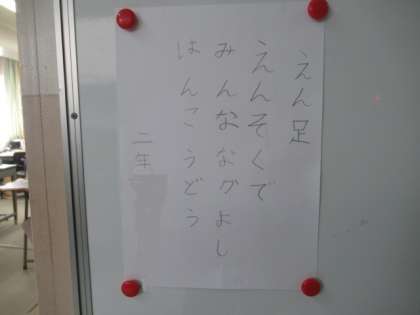 えん足
えんそくで
みんななかよし
はんこうどう
二年